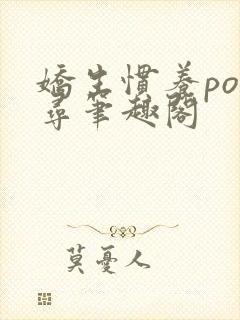 嬌生慣養po
尋筆趣閣
莫憂人